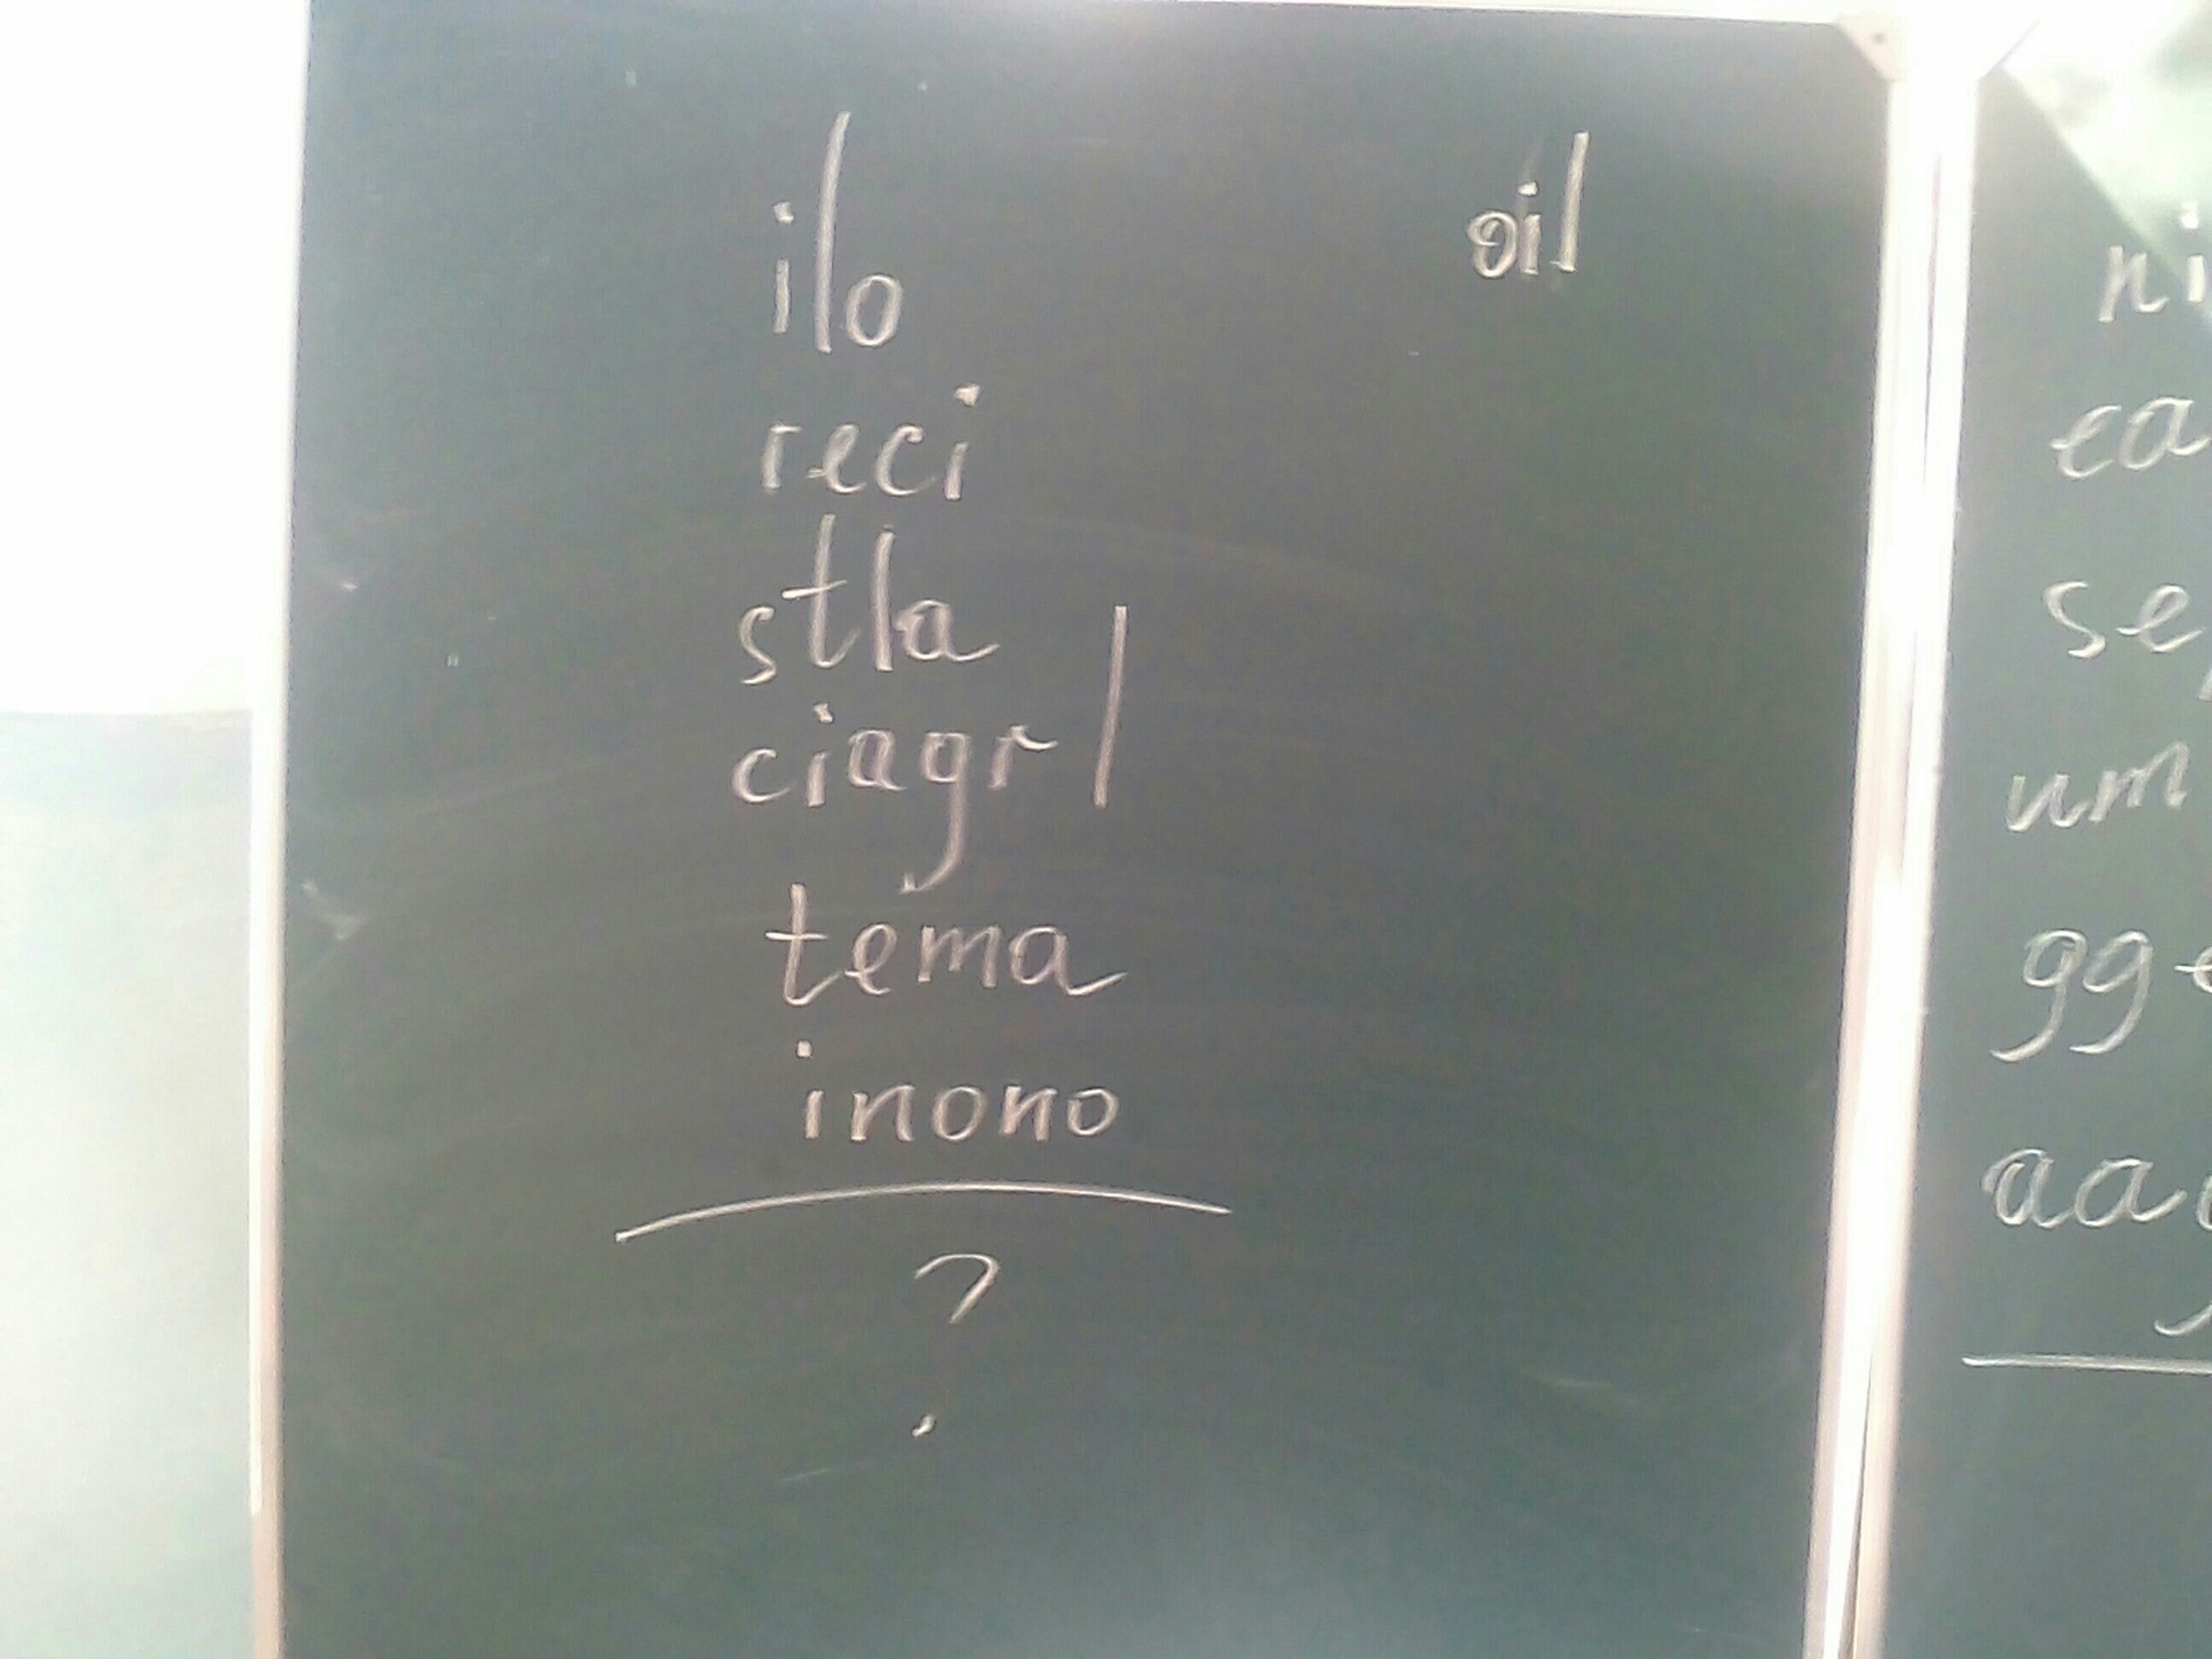 ilo
oil
reci
stla
ciagr |
tema
inono
?
ni
ea
se
um
gg
aa